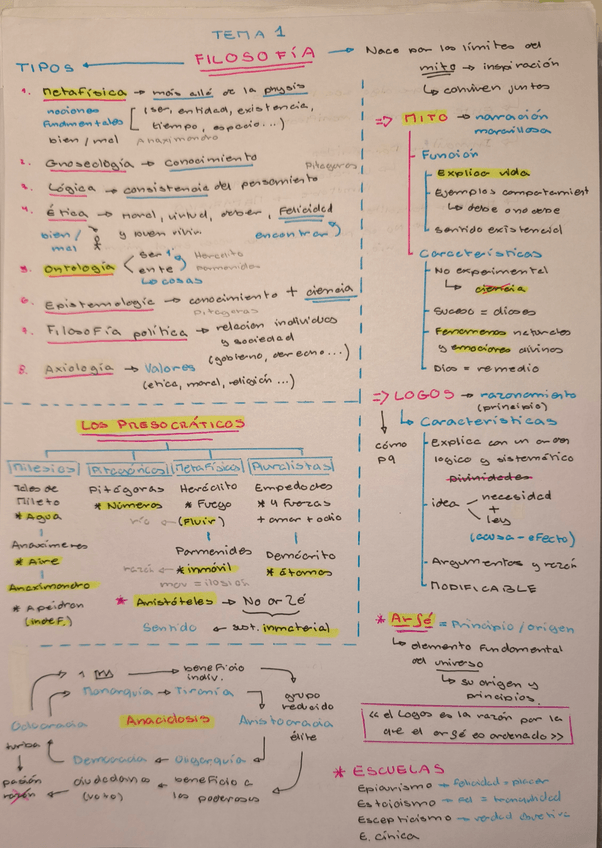 TEMA 1
FILOSOFÍA
TIPOS
1. Metafísica → más allá de la physis
nociones fundamentales [ (ser, entidad, existencia,
tiempo, espacio...)
bien/mal Anaximandro
2. Gnoseología → Conocimiento
Pitágoras
3. Lógica → consistencia del pensamiento
4. Ética → moral, virtud, deber, Felicidad
bien/mal y buen vivir encontrar
5. Ontología < ser Heráclito
ente Parménides
↳ cosas
6. Epistemología → conocimiento + ciencia
Pitágoras
7. Filosofía política → relación individuos
y sociedad
(gobierno, derecho...)
8. Axiología → Valores
(etica, moral, religión...)
Nace por los límites del
mito → inspiración
↳ conviven juntos
=> MITO → narración
maravillosa
Función
Explica vida
Ejemplos comportamient
↳ debe o no debe
sentido existencial
Características
No experimental
↳ ciencia
Suceso = dioses
Fenomenos naturales
y emociones divinos
Dios = remedio
=> LOGOS → razonamiento
(principio)
cómo
pq
↳ Características
Explica con un orden
logico y sistemático
divinidades
idea necesidad
+
ley
(causa - efecto)
Argumentos y razón
MODIFICABLE
* Arjé = Principio / origen
↳ elemento fundamental
del universo
↳ su origen y
principios.
<< el Logos es la razón por la
que el arjé es ordenado >>
* ESCUELAS
Epicurismo → felicidad = placer
Estoicismo → = tranquilidad
Escepticismo → verdad
E. cínica
LOS PRESOCRÁTICOS
Milesios
Tales de
Mileto
* Agua
Anaxímenes
* Aire
Anaximandro
* Apeidron
(indef.)
Pitagóricos
Pitágoras
* Números
Metafísicos
Heráclito
* Fuego
río ← (Fluir)
Parmenides
← * inmóvil
mov = ilosión
Pluralistas
Empedocles
* 4 fuerzas
+ amor + odio
Demócrito
* átomos
* Aristóteles → No arjé
Sentido ← sust. inmaterial
Anaciclosis
→ 1 → beneficio
indiv.
Monarquía → Tiranía
grupo
reducido
élite
Aristocracia
Oligarquía
beneficio a
los poderosos
Democracia
ciudadanos
(voto)
Oclocracia
turba
pasión
razón